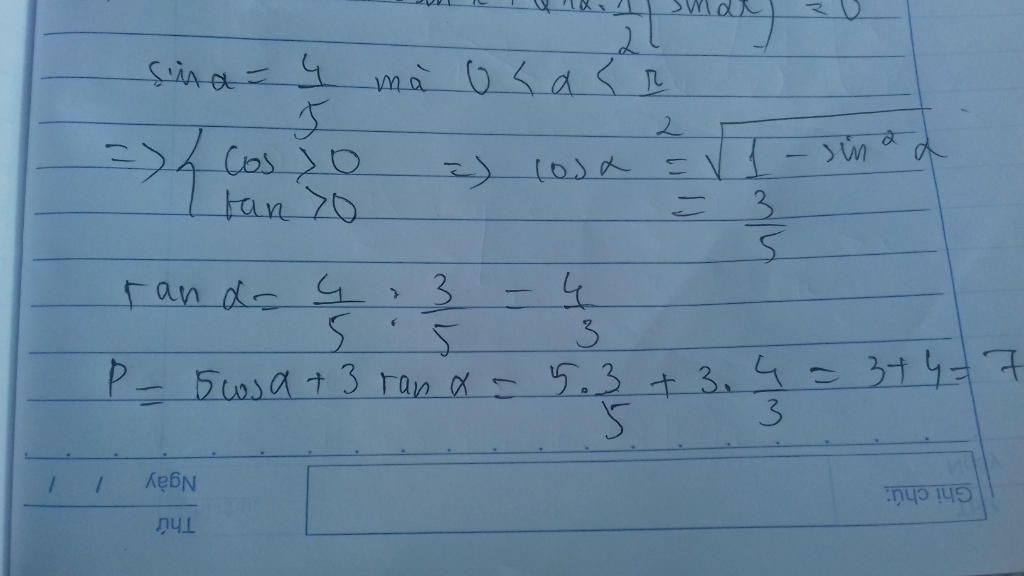 = 0
sin α = 4/5 mà 0 < α < π/2
=> { cos > 0 => cos α = √(1 - sin² α)
tan > 0 = 3/5
tan α = 4/5 : 3/5 = 4/3
P = 5cos α + 3 tan α = 5.3/5 + 3.4/3 = 3+4 = 7
Ghi chú:
Ngày / /
Thứ